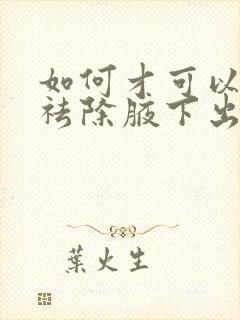 如何才可以
祛除腋下出
葉火生